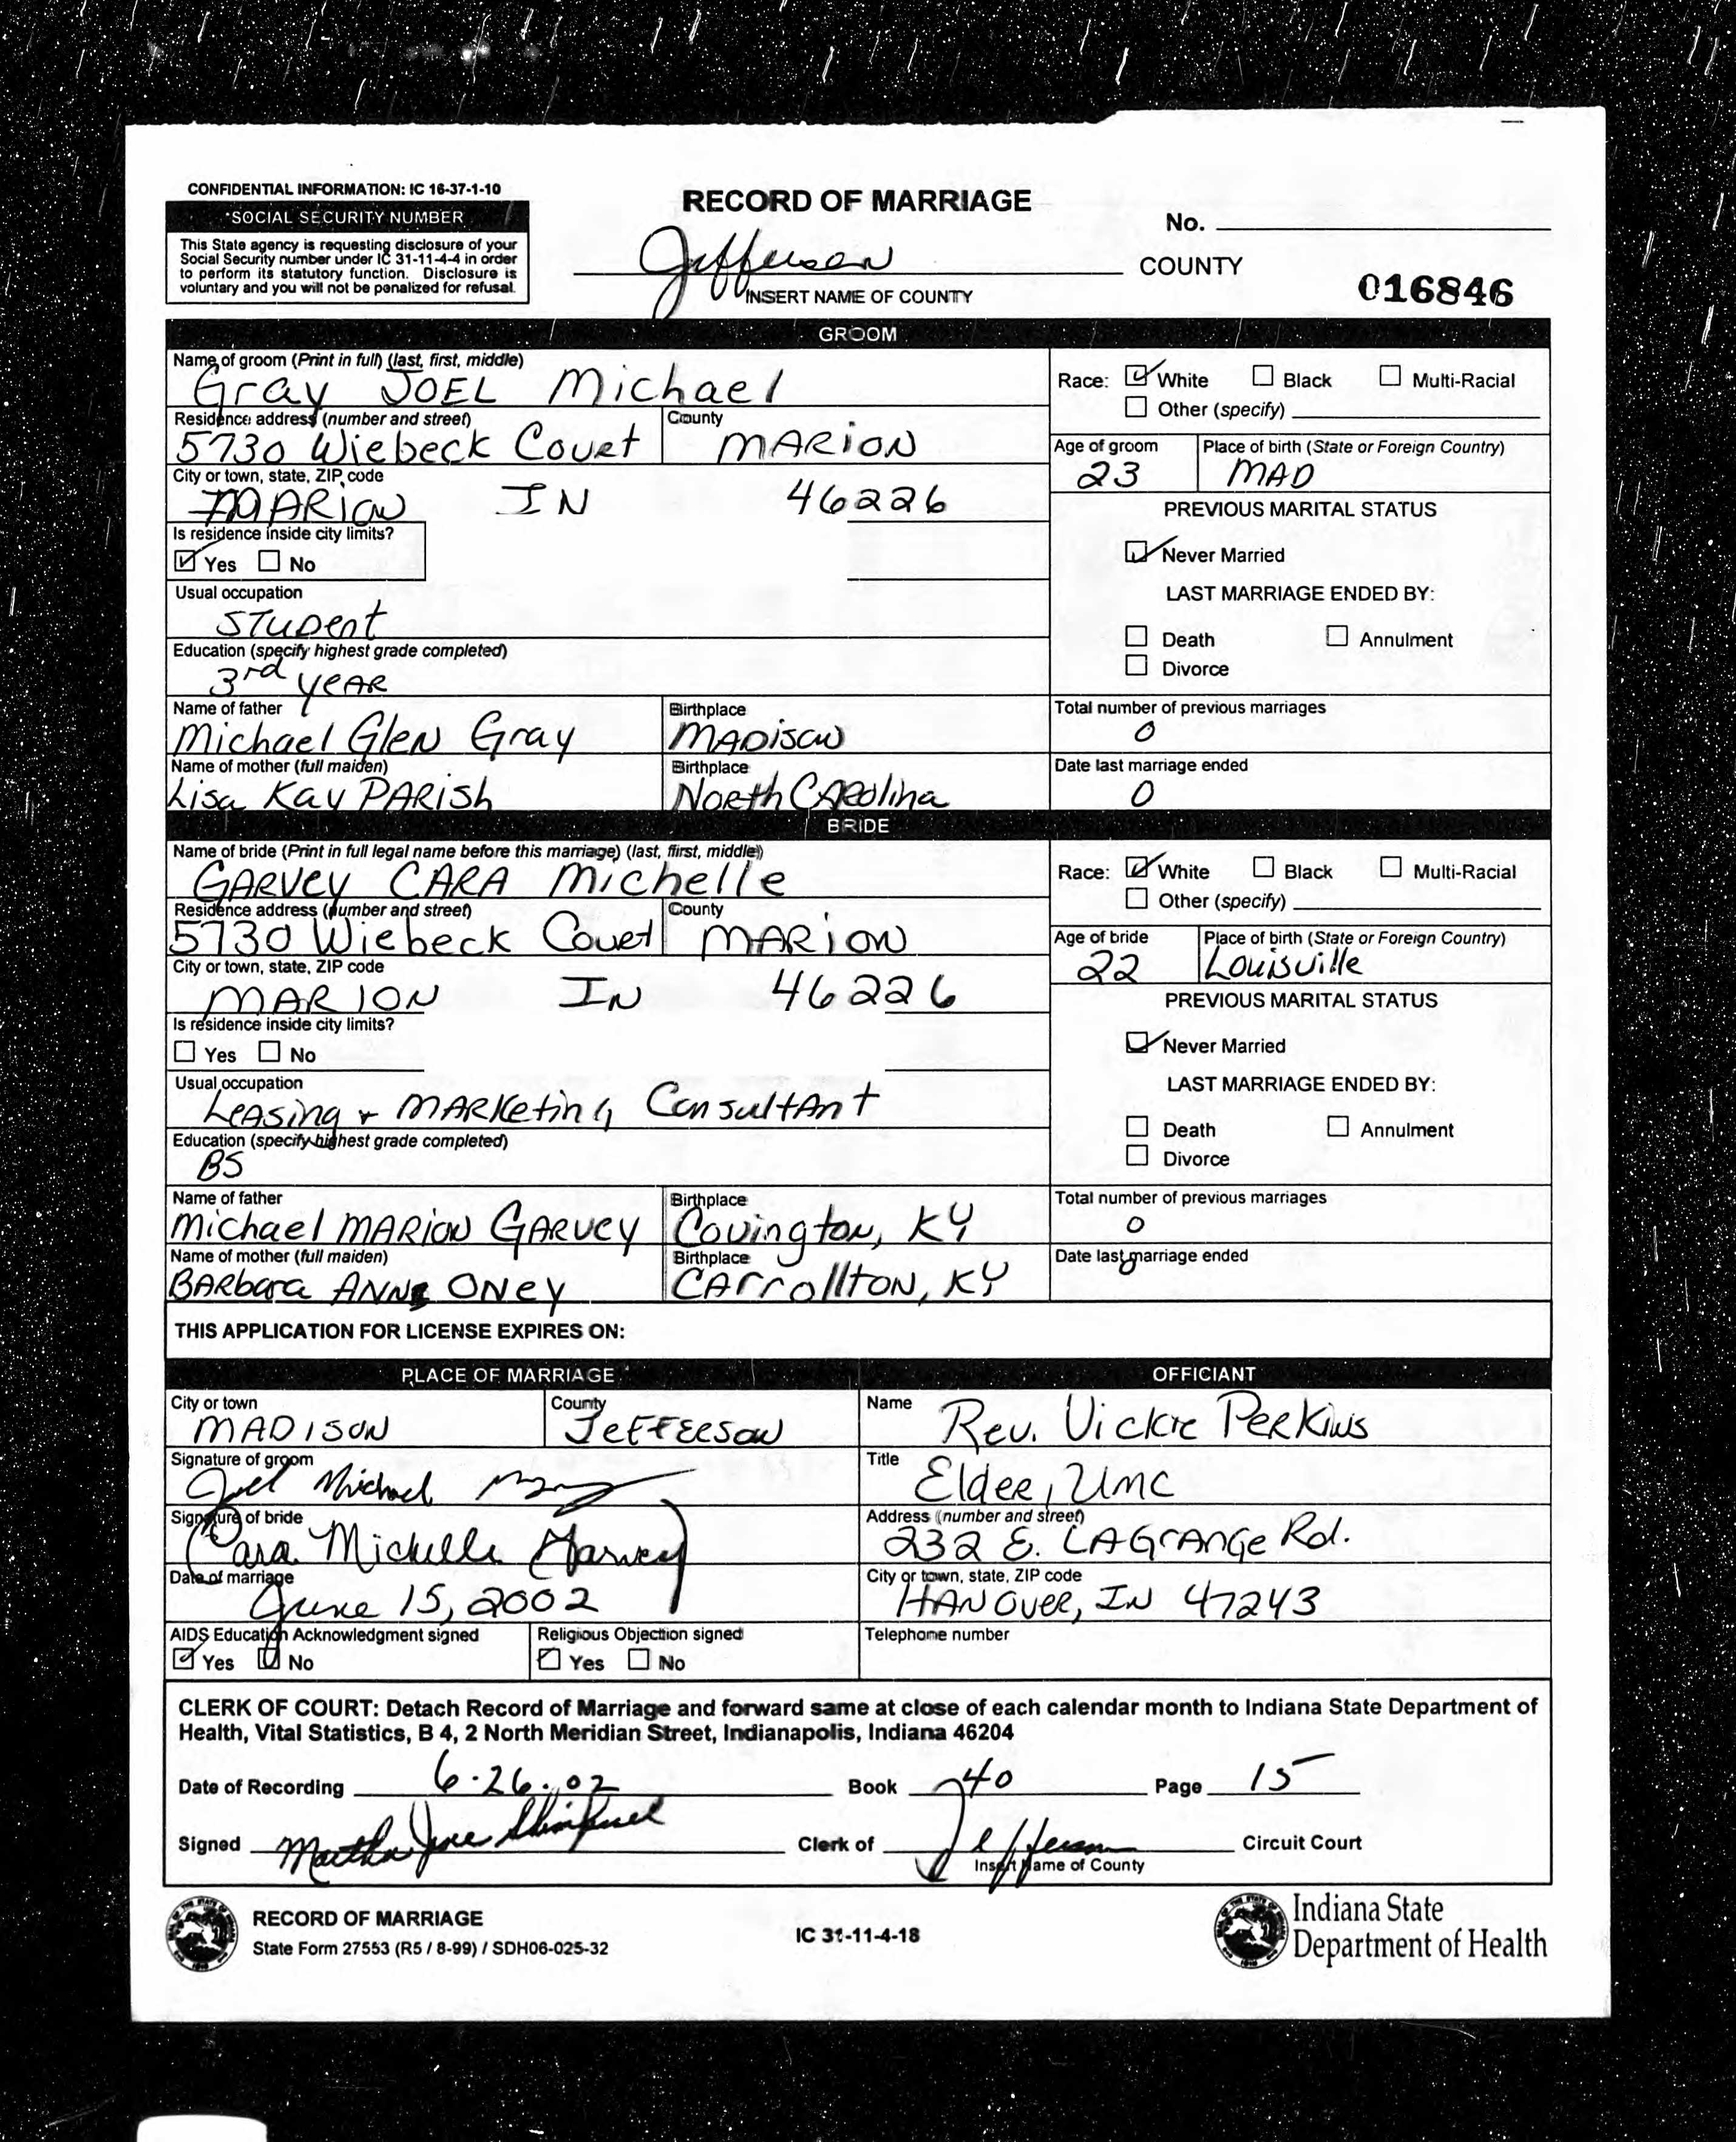 CONFIDENTIAL INFORMATION: IC 16-37-1-10
*SOCIAL SECURITY NUMBER
This State agency is requesting disclosure of your
Social Security number under IC 31-11-4-4 in order
to perform its statutory function. Disclosure is
voluntary and you will not be penalized for refusal.
RECORD OF MARRIAGE
No.
Jefferson COUNTY
INSERT NAME OF COUNTY
016846
GROOM
Name of groom (Print in full) (last, first, middle)
Gray JOEL Michael
Race: White Black Multi-Racial
Other (specify)
Residence address (number and street) County
5730 Wiebeck Court MARION
Age of groom Place of birth (State or Foreign Country)
23 MAD
City or town, state, ZIP code
MARION IN 46226
PREVIOUS MARITAL STATUS
Is residence inside city limits?
Yes No
Never Married
Usual occupation
Student
LAST MARRIAGE ENDED BY:
Death Annulment
Divorce
Education (specify highest grade completed)
3rd YEAR
Name of father Birthplace
Michael Glen Gray MADISON
Total number of previous marriages
0
Name of mother (full maiden) Birthplace
Lisa Kay PARish North CAROlina
Date last marriage ended
0
BRIDE
Name of bride (Print in full legal name before this marriage) (last, first, middle)
GARVey CARA Michelle
Race: White Black Multi-Racial
Other (specify)
Residence address (number and street) County
5730 Wiebeck Court MARION
Age of bride Place of birth (State or Foreign Country)
22 Louisville
City or town, state, ZIP code
MARION IN 46226
PREVIOUS MARITAL STATUS
Is residence inside city limits?
Yes No
Never Married
Usual occupation
LEASing + MARKeting ConsultAnt
LAST MARRIAGE ENDED BY:
Death Annulment
Divorce
Education (specify highest grade completed)
BS
Name of father Birthplace
Michael MARION GARVey Covington, KY
Total number of previous marriages
0
Name of mother (full maiden) Birthplace
BARbara ANNE ONey CArrollton, KY
Date last marriage ended
0
THIS APPLICATION FOR LICENSE EXPIRES ON:
PLACE OF MARRIAGE OFFICIANT
City or town County
MADISON JeFFERSON
Name Rev. Vickie PerKins
Signature of groom
Joel Michael Gray
Title Elder, UMC
Signature of bride
Cara Michelle Garvey
Address (number and street)
232 E. LAGrANGe Rd.
Date of marriage
June 15, 2002
City or town, state, ZIP code
HANOVER, IN 47243
AIDS Education Acknowledgment signed
Yes No
Religious Objection signed
Yes No
Telephone number
CLERK OF COURT: Detach Record of Marriage and forward same at close of each calendar month to Indiana State Department of
Health, Vital Statistics, B 4, 2 North Meridian Street, Indianapolis, Indiana 46204
Date of Recording 6-26-02 Book 40 Page 15
Signed Martha Jane Clerk of Jefferson Circuit Court
Insert Name of County
RECORD OF MARRIAGE
State Form 27553 (R5 / 8-99) / SDH06-025-32
IC 31-11-4-18
Indiana State
Department of Health